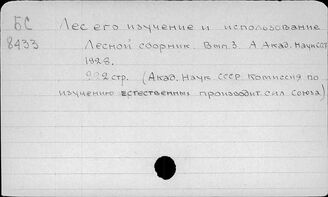 БС Лес его изучение и использование
8433 Лесной сборник. Вып. 3. Л Акад. Наук СССР
1928.
292 стр. (Акад. Наук СССР Комиссия по
изучению естественных производит. сил Союза)